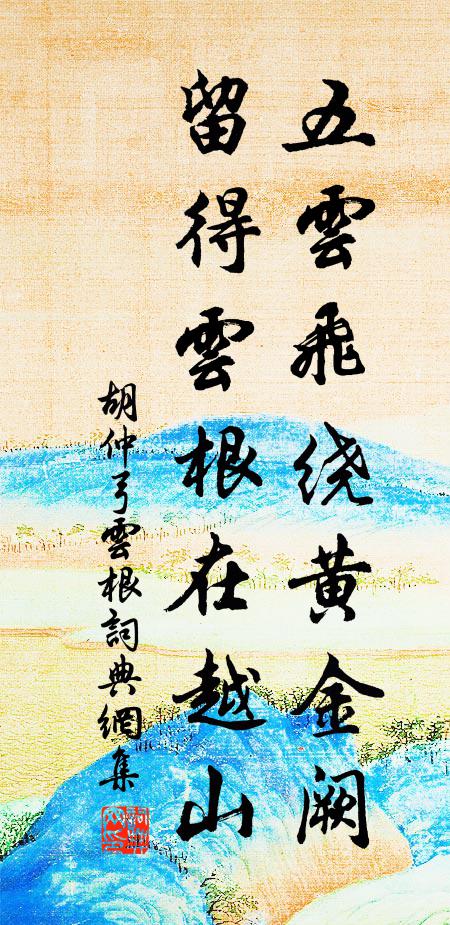 五雲飛绕黄金阙
留得雲根在越山
胡仲弓雲根詞典網集